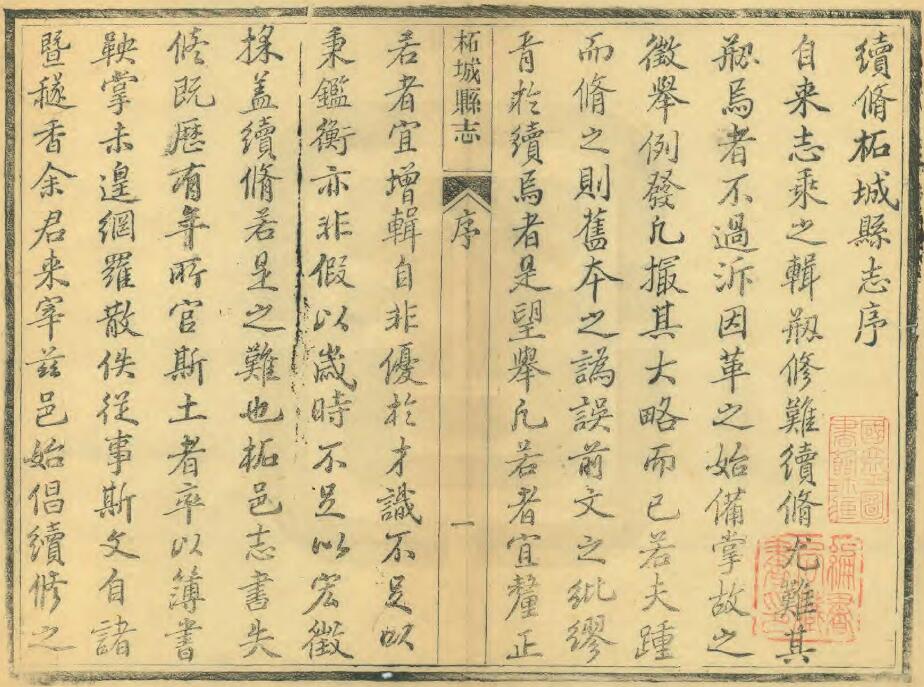 續脩柘城縣志序
自来志乘之輯剏修難續脩尤難其
剏焉者不過泝因革之始備掌故之
徵舉例發凡撮其大略而已若夫踵
而脩之則舊夲之譌誤前文之紕繆
胥於續焉者是望舉凡若者宜釐正
柘城縣志
序
一
若者宜增輯自非優於才識不足以
秉鑑衡亦非假以歲時不足以宏徵
採盖續脩若是之難也柘邑志書失
脩既歷有年所官斯土者卒以簿書
鞅掌未遑網羅散佚從事斯文自諸
暨𨗿香余君来宰兹邑始倡續修之